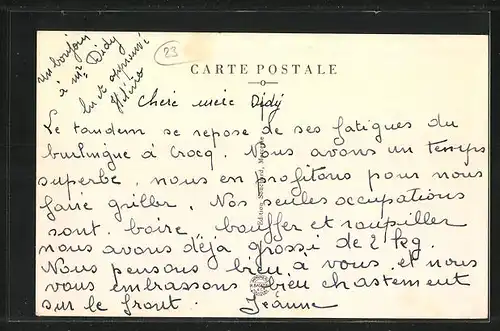 un bonjour
à Mr Didy
lu et approuvé
Héléna
23
CARTE POSTALE
Chère mère Didy
Le tandem se repose de ses fatigues du
burlingue à Crocq. Nous avons un temps
superbe, nous en profitons pour nous
faire griller. Nos seules occupations
sont. boire, bouffer et roupiller
nous avons déjà grossi de 2 kg.
Nous pensons bien à vous et nous
vous embrassons bien chastement
sur le front. Jeanne
Édition